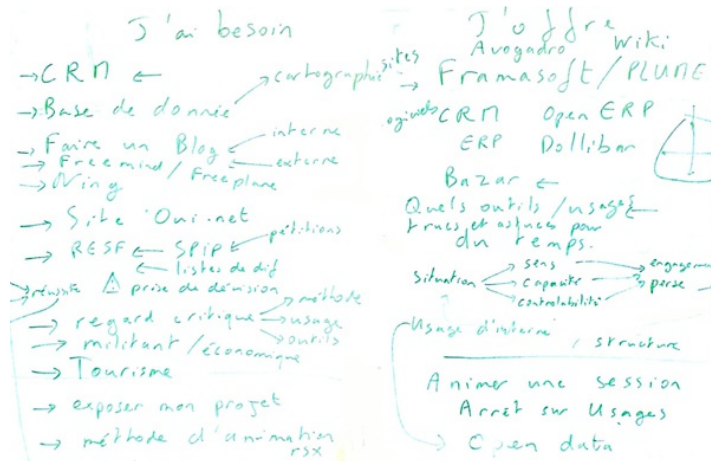 J'ai besoin
→ CRM ←
→ Base de donnée → cartographie
→ Faire un Blog ← interne
← externe
→ Freemind / Freeplane
→ Ning
→ Site Oui.net
→ RESF ← SPIP ← pétitions
← listes de dif
→ réussite ⚠ prise de décision
→ regard critique → méthode
→ usage
→ outils
→ militant / économique
→ Tourisme
→ exposer mon projet
→ méthode d'animation
rsx
J'offre
Avogadro Wiki
sites
→ Framasoft / PLUME
CRM Open ERP
ERP Dollibar
Bazar ←
Quels outils / usages ←
trucs et astuces pour
du temps.
Situation → sens → engagemen
→ capacité → perse
→ controlabilité
Usage d'interne
, structure
Animer une session
Arrêt sur Usages
→ Open data